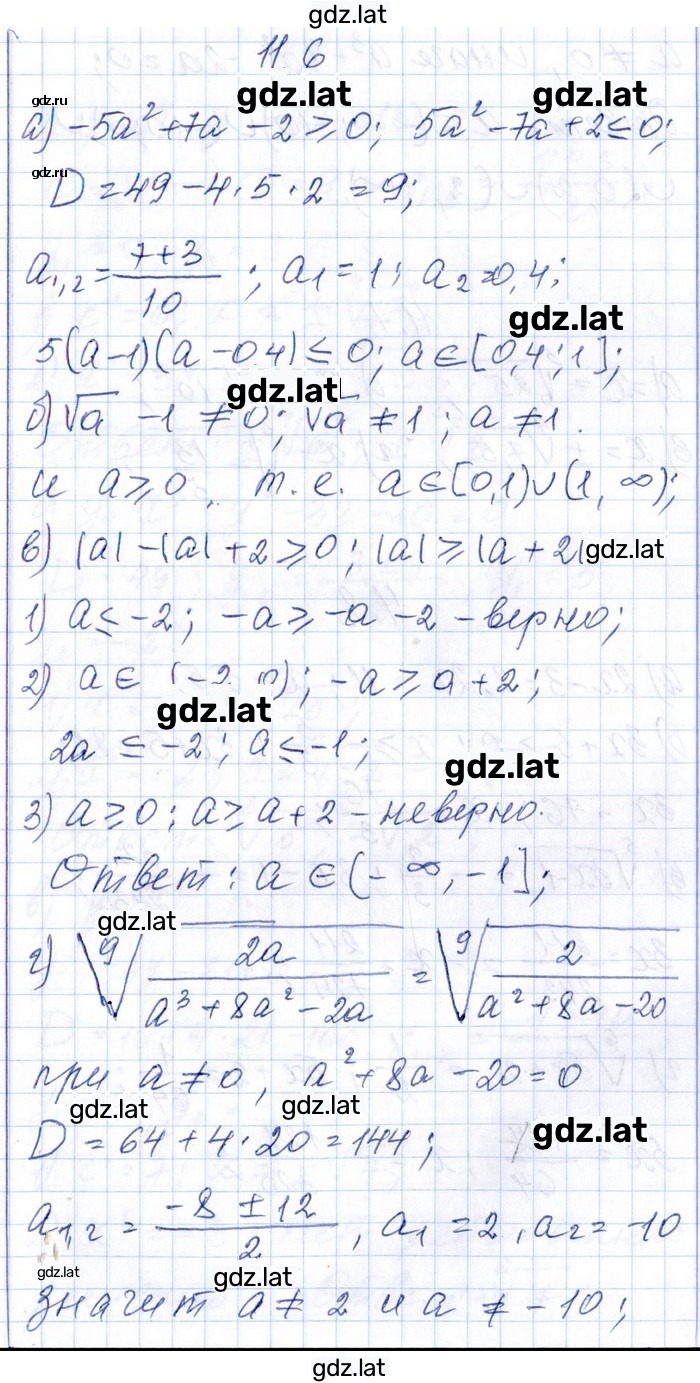 gdz.lat
11.6
gdz.ru gdz.lat gdz.lat
а) -5a² + 7a - 2 ≥ 0; 5a² - 7a + 2 ≤ 0;
gdz.ru
D = 49 - 4 · 5 · 2 = 9;
a₁,₂ = (7+3)/10; a₁ = 1; a₂ = 0,4;
gdz.lat
5(a-1)(a-04) ≤ 0; a ∈ [0,4; 1];
gdz.lat
б) √a - 1 ≠ 0; √a ≠ 1; a ≠ 1.
и a ≥ 0, т.е. a ∈ [0,1) ∪ (1, ∞);
в) |a| - |a| + 2 ≥ 0; |a| ≥ |a + 2| gdz.lat
1) a ≤ -2; -a ≥ -a - 2 - верно;
2) a ∈ (-2, 0); -a ≥ a + 2;
gdz.lat
2a ≤ -2; a ≤ -1;
gdz.lat
3) a ≥ 0; a ≥ a + 2 - неверно.
Ответ: a ∈ (-∞, -1];
gdz.lat
г) ⁹√(2a/(a³ + 8a² - 2a)) = ⁹√(2/(a² + 8a - 20))
при a ≠ 0, a² + 8a - 20 = 0
gdz.lat gdz.lat
D = 64 + 4 · 20 = 144; gdz.lat
a₁,₂ = (-8 ± 12)/2, a₁ = 2, a₂ = -10
gdz.lat gdz.lat
значит a ≠ 2 и a ≠ -10;
gdz.lat